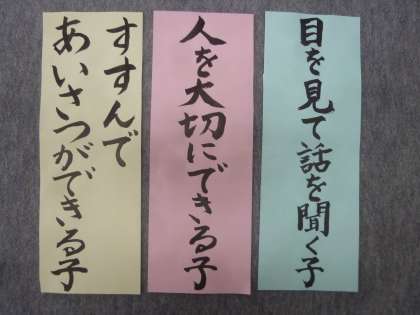 目を見て話を聞く子
人を大切にできる子
すすんで
あいさつができる子